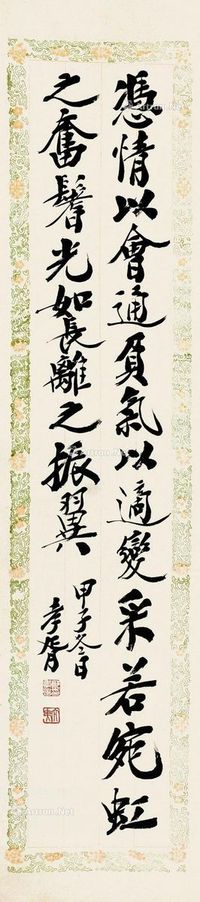 憑情以會通負氣以適變采若宛虹
之奮鬐光如長離之振翼
甲子冬日
孝胥